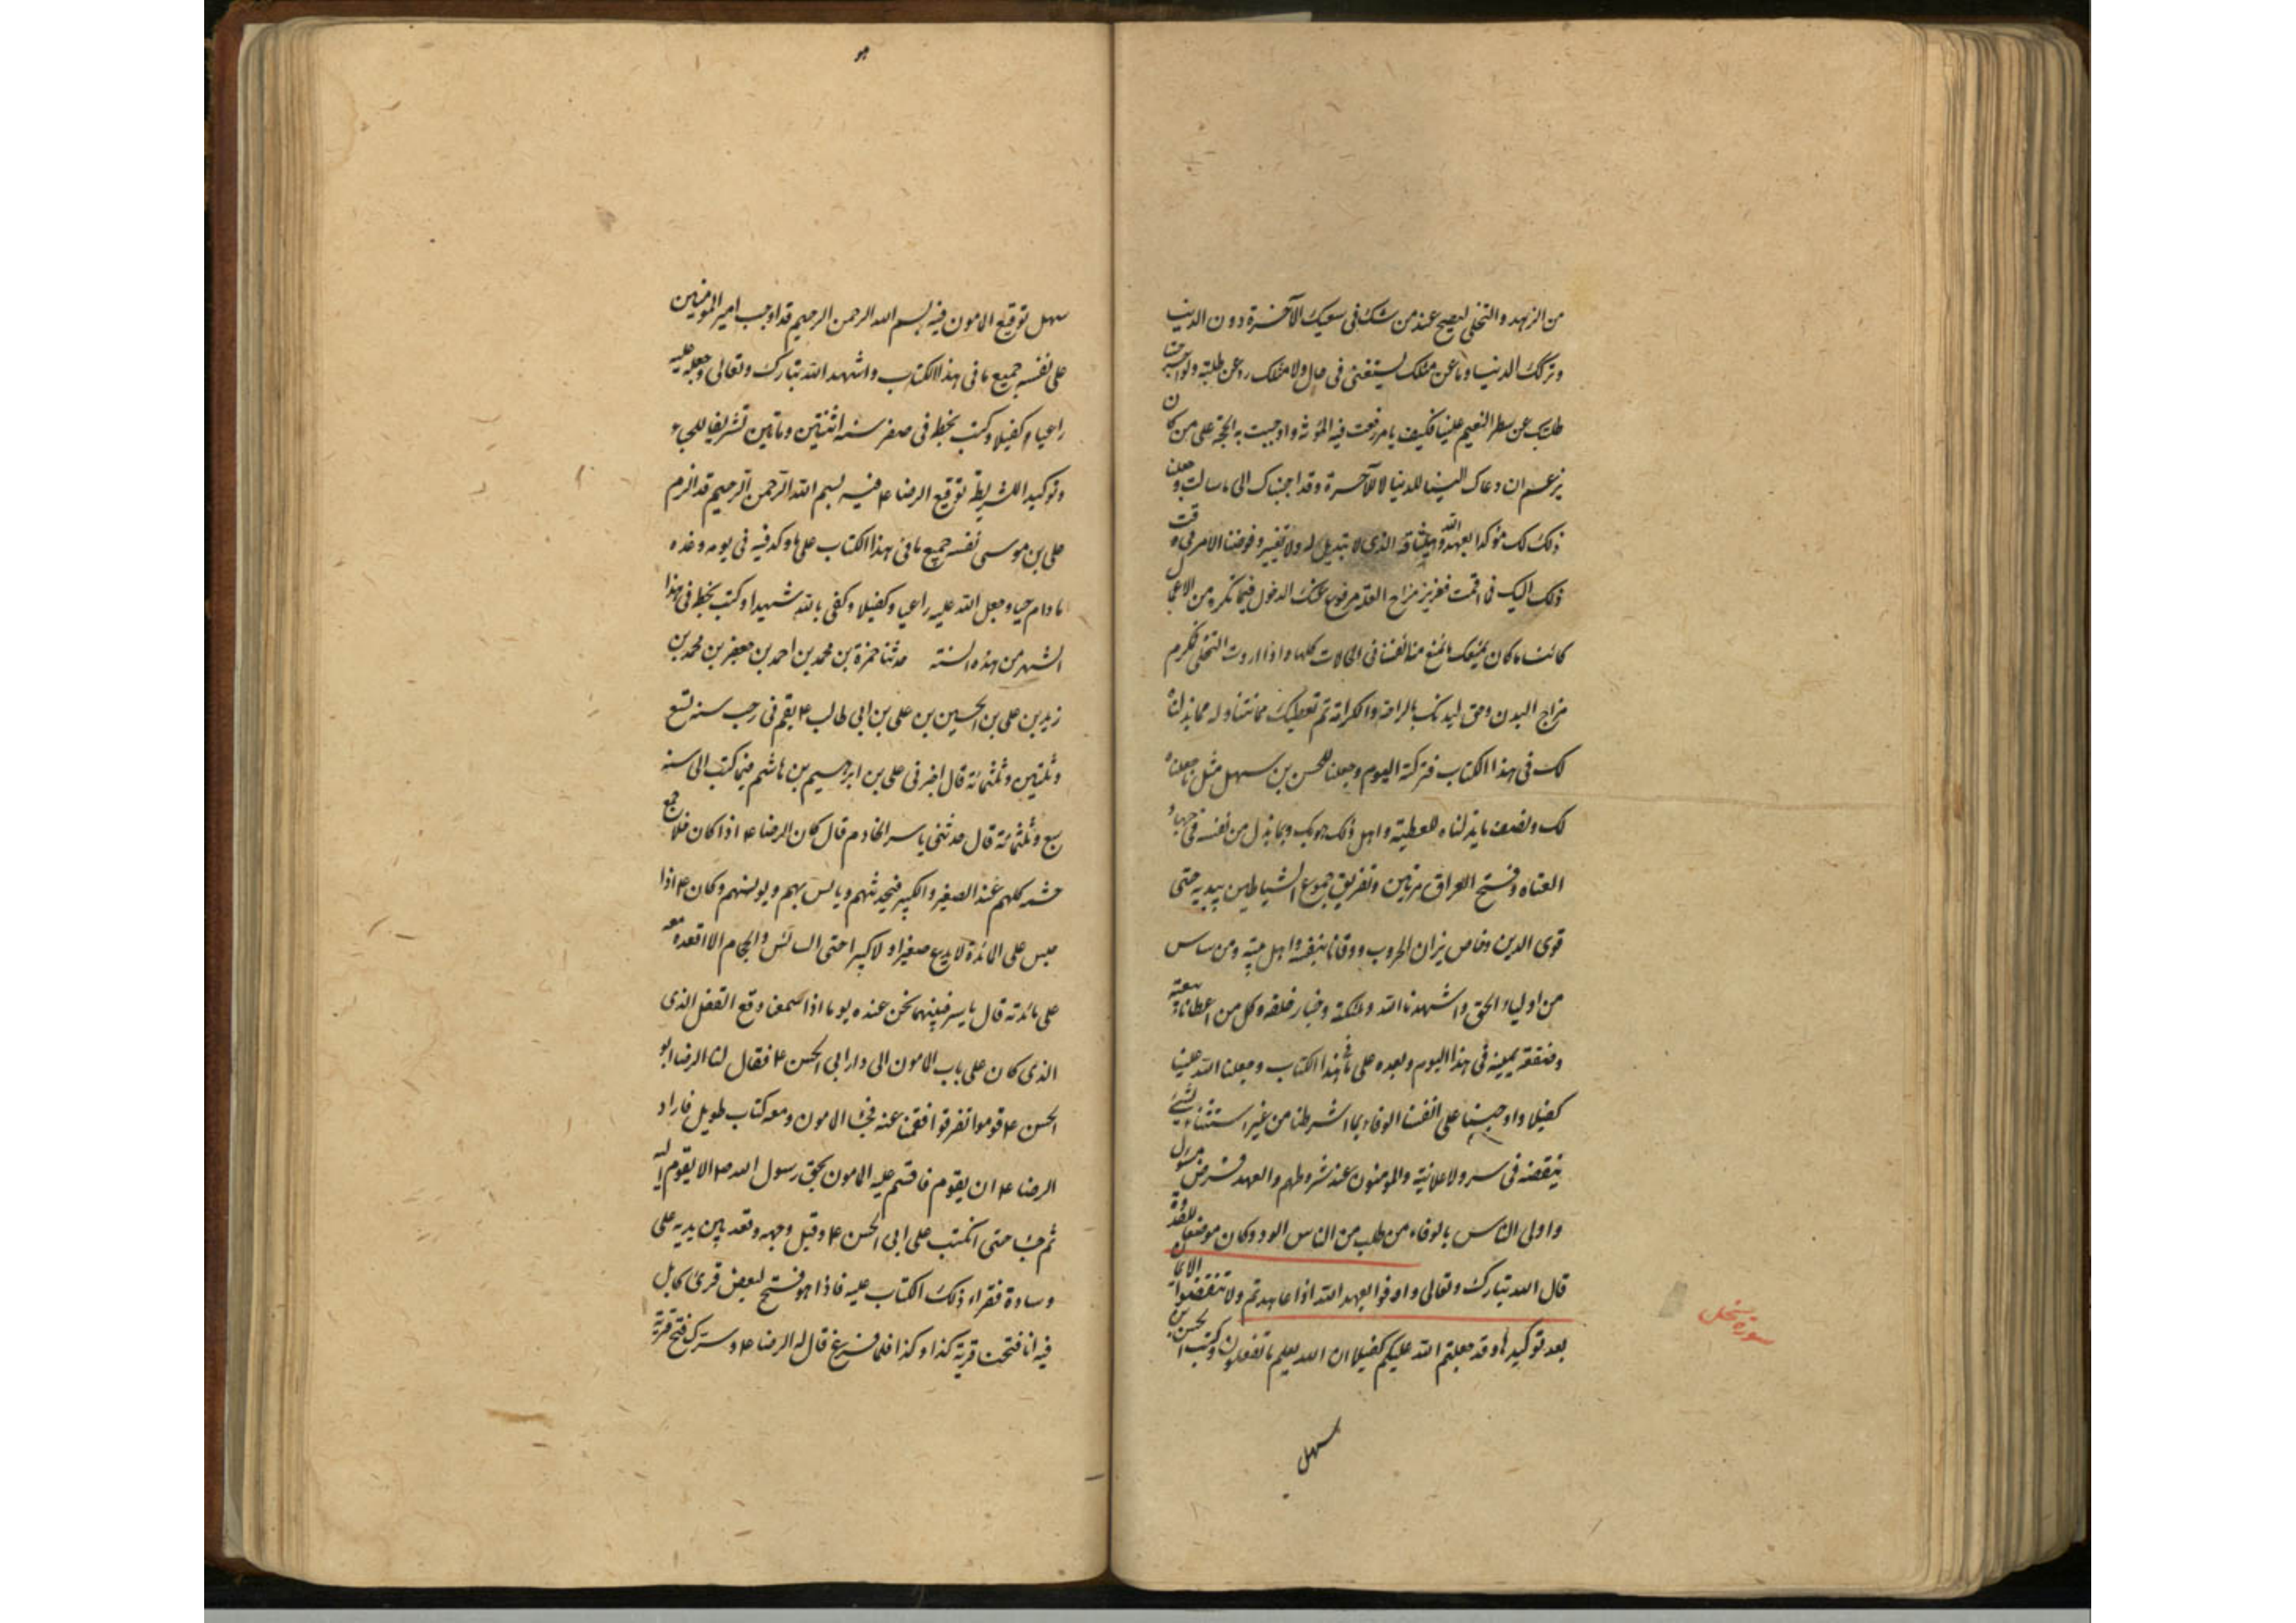 من الزهد والتخلي ليصح عند من شك في سعيك للآخرة دون الدنيا
وتركك الدنيا وما عن مثلك يستغنى في حال ولا مثلك رد عن طلبته ولو اخرجتنا
طلبتك عن شطر النعيم علينا فكيف بامر رفعت فيه المؤنة واوجبت به الحجة على من كان
يزعم ان دعاك الينا للدنيا لا للآخرة وقد اجبناك الى ما سالت وجعلنا
ذلك لك مؤكدا بعهد الله وميثاقه الذي لا تبديل له ولا تغيير وفوضنا الامر في وقت
ذلك اليك فما اقمت فعزيز مزاح العلة مدفوع عنك الدخول فيما تكره من الاعمال
كائنا ما كان نمنعك مما نمنع منه انفسنا في الحالات كلها واذا اردت التخلي فمكرم
مزاح البدن وحق لبدنك بالراحة والكرامة ثم نعطيك مما نتناوله مما بذلناه
لك في هذا الكتاب فتركته اليوم وجعلنا للحسن بن سهل مثل ما جعلناه
لك ونصف ما بذلناه للعطية واهل ذلك هو لك وبما بذل من نفسه في جهاد
العتاة وفتح العراق مرتين وتفريق جموع الشياطين بيديه حتى
قوى الدين وخاض نيران الحروب ووقانا بنفسه واهل بيته ومن ساس
من اولياء الحق واشهدنا الله وملئكته وخيار خلقه وكل من اعطانا بيعته
وصفقة يمينه في هذا اليوم وبعده على ما في هذا الكتاب وجعلنا الله علينا
كفيلا واوجبنا على انفسنا الوفاء بما اشترطنا من غير استثناء بشيء
ينقضه في سر ولا علانية والمؤمنون عند شروطهم والعهد فرض مسئول
واولى الناس بالوفاء من طلب من الناس الوفاء وكان موضعا للقدرة
قال الله تبارك وتعالى واوفوا بعهد الله اذا عاهدتم ولا تنقضوا الايمان
بعد توكيدها وقد جعلتم الله عليكم كفيلا ان الله يعلم ما تفعلون وكتب الحسن بن
سهل
سورة نحل
هو
سهل توقيع المامون فيه بسم الله الرحمن الرحيم قد اوجب امير المؤمنين
على نفسه جميع ما في هذا الكتاب واشهد الله تبارك وتعالى وجعله عليه
راعيا وكفيلا وكتب بخطه في صفر سنة اثنتين وماتين تشريفا للحباء
وتوكيدا للشريطة توقيع الرضا ع فيه بسم الله الرحمن الرحيم قد الزم
على بن موسى نفسه جميع ما في هذا الكتاب على ما وكد فيه في يومه وغده
ما دام حيا وجعل الله عليه راعيا وكفيلا وكفى بالله شهيدا وكتب بخطه في هذا
الشهر من هذه السنة حدثنا حمزة بن محمد بن احمد بن جعفر بن محمد بن
زيد بن على بن الحسين بن على بن ابى طالب ع بقم في رجب سنه تسع
وثلثين وثلثمائة قال اخبرنى على بن ابرهيم بن هاشم فيما كتب الى سنه
سبع وثلثمائة قال حدثنى ياسر الخادم قال كان الرضا ع اذا كان خلا جمع
حشمه كلهم عنده الصغير والكبير فيحدثهم ويانس بهم ويونسهم وكان ع اذا
جلس على المائدة لا يدع صغيرا ولا كبيرا حتى السائس والحجام الا اقعده معه
على مائدته قال ياسر فبينما نحن عنده يوما اذا سمعنا وقع القفل الذى
الذى كان على باب المامون الى دار ابى الحسن ع فقال لنا الرضا ابو
الحسن ع قوموا تفرقوا فقمنا عنه فجاء المامون ومعه كتاب طويل فاراد
الرضا ع ان يقوم فاقسم عليه المامون بحق رسول الله ص الا يقوم اليه
ثم جاء حتى انكب على ابى الحسن ع وقبل وجهه وقعد بين يديه على
وسادة فقراء ذلك الكتاب عليه فاذا هو فتح لبعض قرى كابل
فيه انا فتحنا قرية كذا وكذا فلما فرغ قال له الرضا ع وسرك فتح قرية